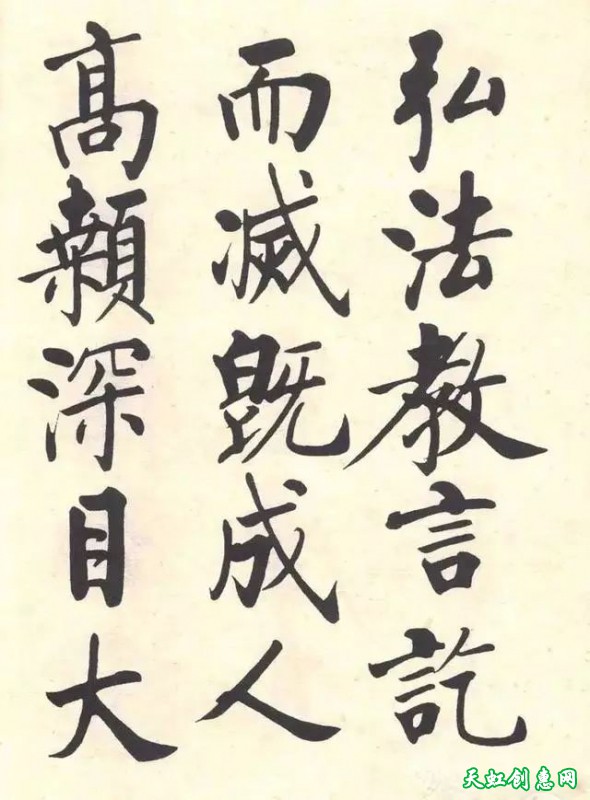 弘法教言訖
而滅既成人
高顙深目大
天虹创意网